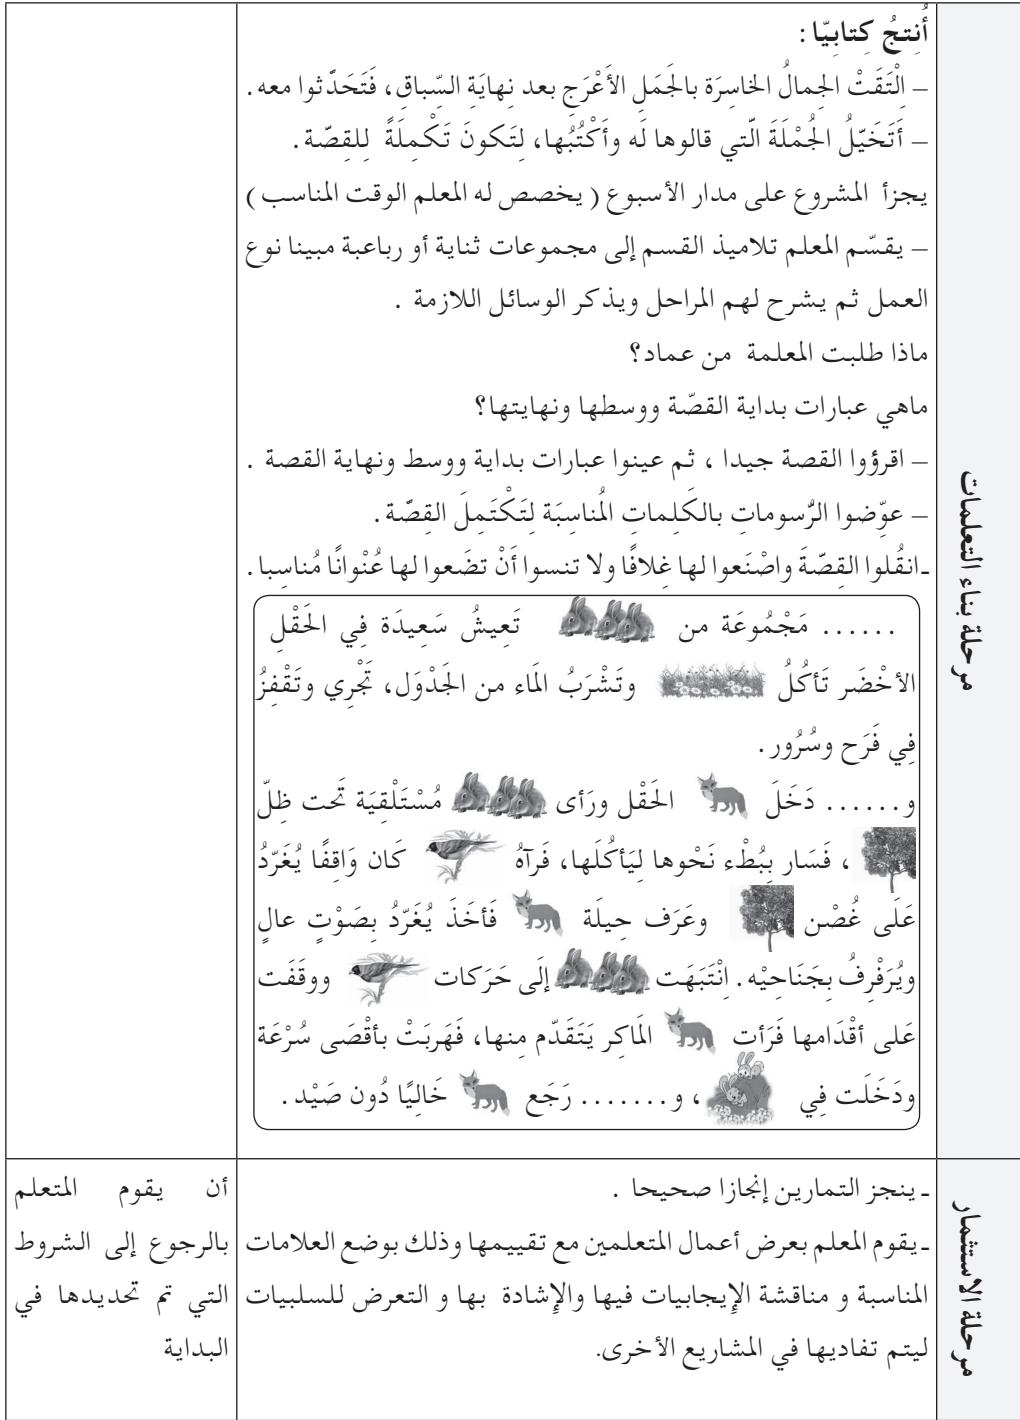 أُنتجُ كِتابيّا :
– اِلْتَقَتْ الجِمالُ الخاسرَة بالجَمَل الأَعْرَج بعد نِهايَة السِّباق، فَتَحَدّثوا معه .
– أَتَخَيّلُ الجُمْلَةَ الّتي قالوها لَه وأَكْتُبُها، لِتَكونَ تَكْمِلَةً لِلقِصّة .
يجزأ المشروع على مدار الأسبوع ( يخصص له المعلم الوقت المناسب )
– يقسّم المعلم تلاميذ القسم إلى مجموعات ثناية أو رباعية مبينا نوع
العمل ثم يشرح لهم المراحل ويذكر الوسائل اللازمة .
ماذا طلبت المعلمة من عماد؟
ماهي عبارات بداية القصّة ووسطها ونهايتها؟
– اقرؤوا القصة جيدا ، ثم عينوا عبارات بداية ووسط ونهاية القصة .
– عوّضوا الرُّسوماتِ بالكَلِماتِ المُناسِبَة لِتَكْتَمِلَ القِصّة .
ـ انقُلوا القِصّةَ واصْنَعوا لها غِلافًا ولا تنسوا أَنْ تضَعوا لها عُنْوانًا مُناسِبا .
...... مَجْمُوعَة من تَعِيشُ سَعِيدَة فِي الحَقْل
الأخْضَر تَأكُلُ وتَشْرَبُ المَاء من الجَدْوَل، تَجْرِي وتَقْفِزُ
فِي فَرَح وسُرُور .
و...... دَخَلَ الحَقْل ورَأى مُسْتَلْقِيَة تَحت ظِلّ
، فَسَار بِبُطْء نَحْوها لِيَأكُلَها، فَرَآهُ كَان وَاقِفًا يُغَرّدُ
عَلَى غُصْن وعَرَف حِيلَة فَأخَذَ يُغَرّدُ بِصَوْتٍ عالٍ
ويُرَفْرِفُ بِجَنَاحِيْه . اِنْتَبَهَت إلَى حَرَكات ووقَفَت
عَلى أقْدَامها فَرَأت المَاكِر يَتَقَدّم مِنها، فَهَرَبَتْ بأقْصَى سُرْعَة
ودَخَلَت فِي ، و....... رَجَع خَالِيًا دُون صَيْد .
مرحلة بناء التعلمات
ـ ينجز التمارين إنجازا صحيحا .
ـ يقوم المعلم بعرض أعمال المتعلمين مع تقييمها وذلك بوضع العلامات
المناسبة و مناقشة الإيجابيات فيها والإشادة بها و التعرض للسلبيات
ليتم تفاديها في المشاريع الأخرى.
أن يقوم المتعلم
بالرجوع إلى الشروط
التي تم تحديدها في
البداية
مرحلة الاستثمار